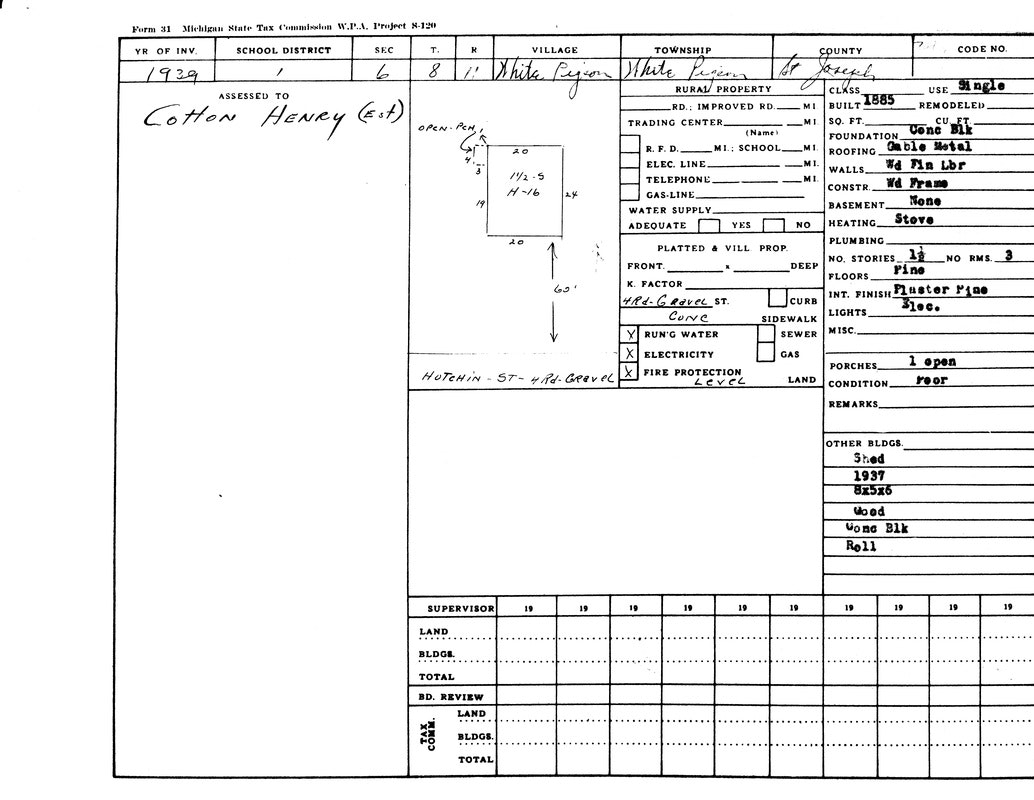 Form 31 Michigan State Tax Commission W.P.A. Project S-120
YR OF INV. SCHOOL DISTRICT SEC T. R VILLAGE TOWNSHIP COUNTY CODE NO.
1939 1 6 8 11 White Pigeon White Pigeon St Joseph
ASSESSED TO
Cotton Henry (Est)
OPEN-PCH,
4
3
20
1 1/2-S
H-16
19
24
20
60'
HUTCHIN-ST-4Rd-Gravel
RURAL PROPERTY
RD.; IMPROVED RD. MI
TRADING CENTER MI
(Name)
R. F. D. MI.; SCHOOL MI.
ELEC. LINE MI.
TELEPHONE MI.
GAS-LINE
WATER SUPPLY
ADEQUATE YES NO
PLATTED & VILL. PROP.
FRONT. x DEEP
K. FACTOR
4Rd-Gravel ST. CURB
Conc SIDEWALK
X RUN'G WATER SEWER
X ELECTRICITY GAS
X FIRE PROTECTION
Level LAND
CLASS USE Single
BUILT 1885 REMODELED
SQ. FT. CU. FT.
FOUNDATION Conc Blk
ROOFING Gable Metal
WALLS Wd Fin Lbr
CONSTR. Wd Frame
BASEMENT None
HEATING Stove
PLUMBING
NO. STORIES 1½ NO RMS. 3
FLOORS Pine
INT. FINISH Plaster Pine
LIGHTS Elec.
MISC.
PORCHES 1 open
CONDITION Poor
REMARKS
OTHER BLDGS.
Shed
1937
8x5x6
Wood
Conc Blk
Roll
SUPERVISOR 19 19 19 19 19 19 19 19 19 19
LAND
BLDGS.
TOTAL
BD. REVIEW
TAX COMM.
LAND
BLDGS.
TOTAL